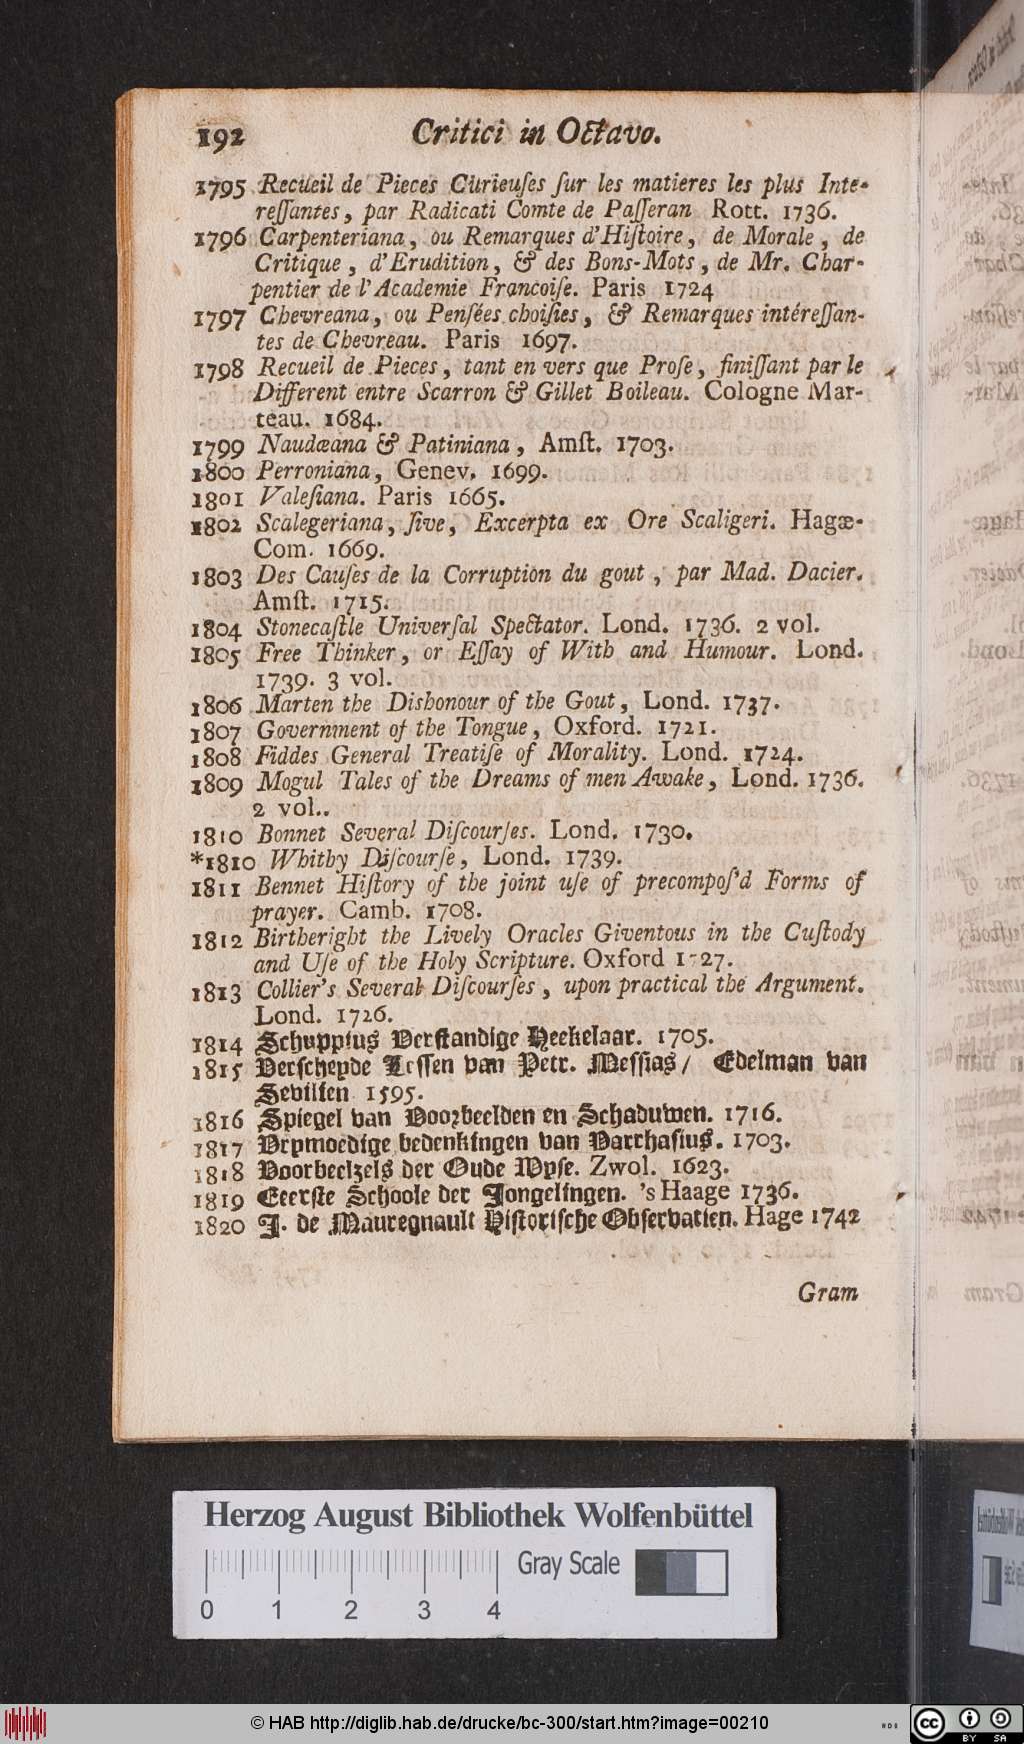 192 Critici in Octavo.
1795 Recueil de Pieces Curieuſes ſur les matieres les plus Inte-
reſſantes, par Radicati Comte de Paſſeran Rott. 1736.
1796 Carpenteriana, ou Remarques d'Hiſtoire, de Morale, de
Critique, d'Erudition, & des Bons-Mots, de Mr. Char-
pentier de l'Academie Francoiſe. Paris 1724
1797 Chevreana, ou Penſées choiſies, & Remarques intéreſſan-
tes de Chevreau. Paris 1697.
1798 Recueil de Pieces, tant en vers que Proſe, finiſſant par le
Different entre Scarron & Gillet Boileau. Cologne Mar-
teau. 1684.
1799 Naudæana & Patiniana, Amſt. 1703.
1800 Perroniana, Genev. 1699.
1801 Valeſiana. Paris 1665.
1802 Scalegeriana, ſive, Excerpta ex Ore Scaligeri. Hagæ-
Com. 1669.
1803 Des Cauſes de la Corruption du gout, par Mad. Dacier.
Amſt. 1715.
1804 Stonecaſtle Univerſal Spectator. Lond. 1736. 2 vol.
1805 Free Thinker, or Eſſay of With and Humour. Lond.
1739. 3 vol.
1806 Marten the Dishonour of the Gout, Lond. 1737.
1807 Government of the Tongue, Oxford. 1721.
1808 Fiddes General Treatiſe of Morality. Lond. 1724.
1809 Mogul Tales of the Dreams of men Awake, Lond. 1736.
2 vol..
1810 Bonnet Several Diſcourſes. Lond. 1730.
*1810 Whitby Diſcourſe, Lond. 1739.
1811 Bennet Hiſtory of the joint uſe of precompoſ'd Forms of
prayer. Camb. 1708.
1812 Birtheright the Lively Oracles Giventous in the Cuſtody
and Uſe of the Holy Scripture. Oxford 1727.
1813 Collier's Several Diſcourſes, upon practical the Argument.
Lond. 1726.
1814 Schuppius Verſtandige Heekelaar. 1705.
1815 Verſcheyde Leſſen van Petr. Meſſias/ Edelman van
Sevilien 1595.
1816 Spiegel van Voorbeelden en Schaduwen. 1716.
1817 Vrymoedige bedenkingen van Parrhaſius. 1703.
1818 Voorbeelzels der Oude Wyſe. Zwol. 1623.
1819 Eeerſte Schoole der Jongelingen. 's Haage 1736.
1820 J. de Mauregnault Hiſtoriſche Obſervatien. Hage 1742
Gram
Herzog August Bibliothek Wolfenbüttel
Gray Scale
0 1 2 3 4
© HAB http://diglib.hab.de/drucke/bc-300/start.htm?image=00210
cc BY SA